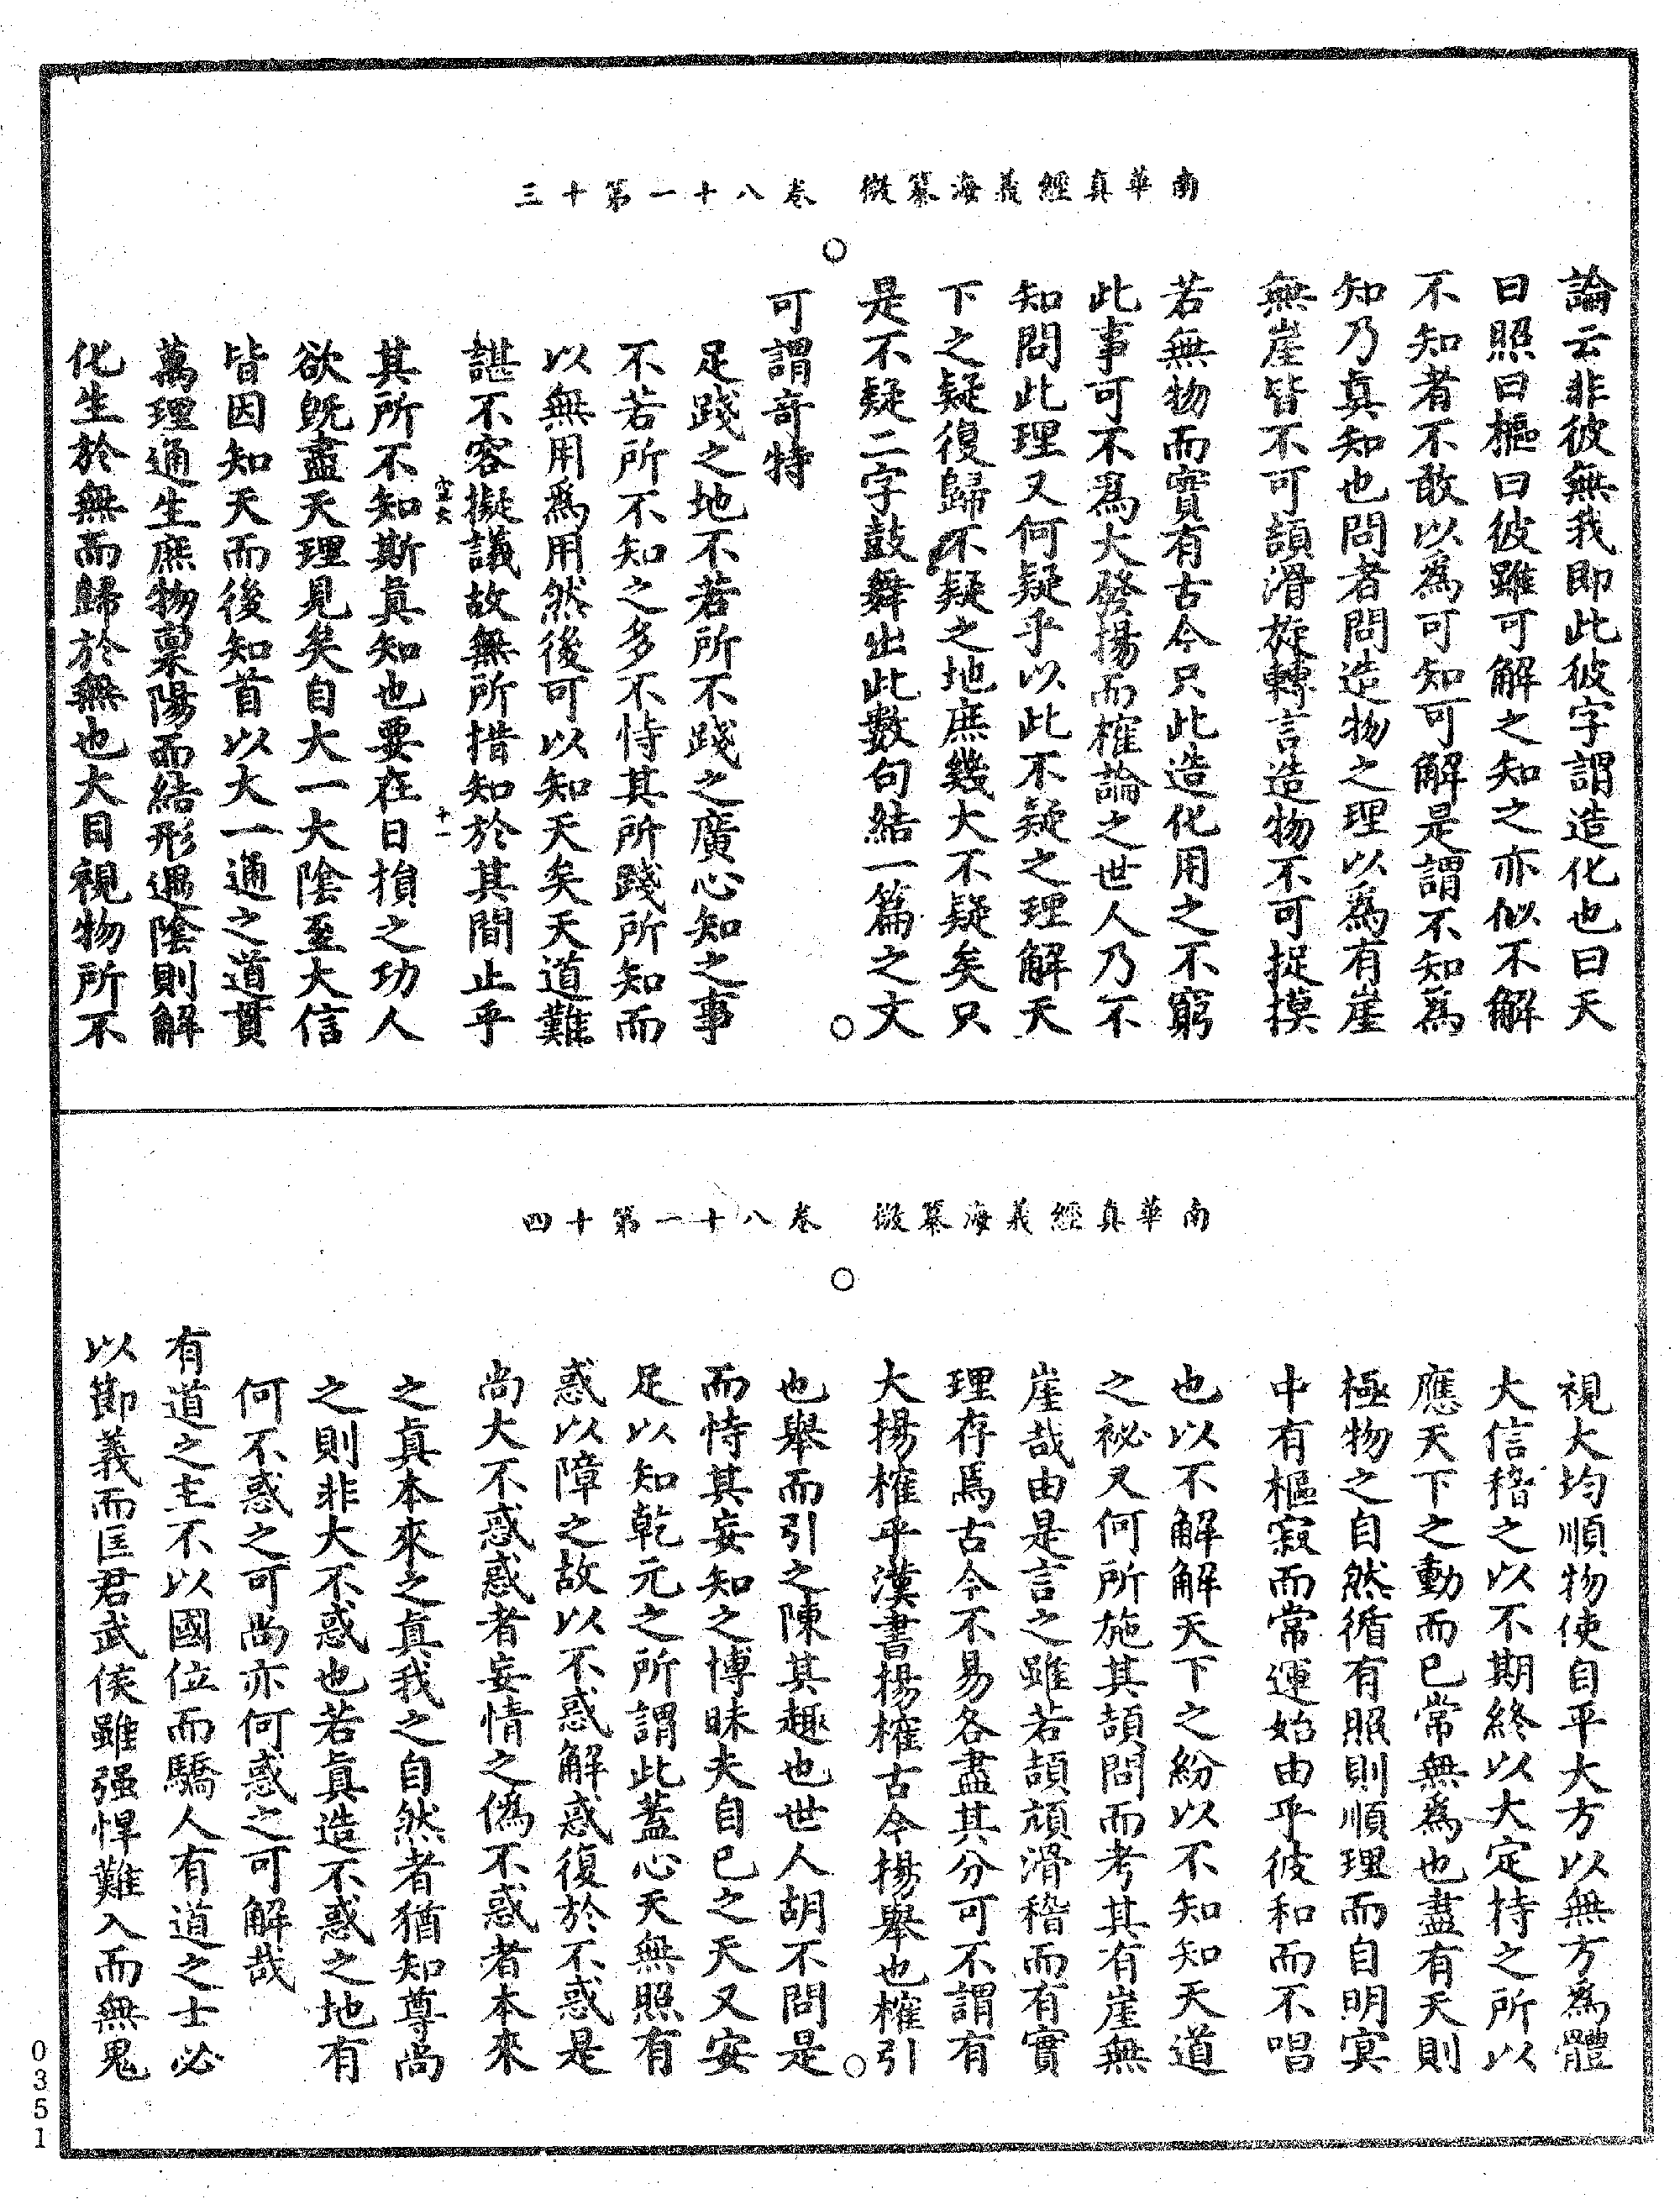 南華真經義海纂微　卷八十一第十三
論云非彼無我即此彼字謂造化也曰天
曰照曰樞曰彼雖可解之知之亦似不解
不知者不敢以為可知可解是謂不知為
知乃真知也問者問造物之理以為有崖
無崖皆不可頡滑旋轉言造物不可捉摸
若無物而實有古今只此造化用之不窮
此事可不為大發揚而榷論之世人乃不
知問此理又何疑乎以此不疑之理解天
下之疑復歸不疑之地庶幾大不疑矣只
是不疑二字鼓舞出此數句結一篇之文
可謂奇特
足踐之地不若所不踐之廣心知之事
不若所不知之多不恃其所踐所知而
以無用為用然後可以知天矣天道難
諶不容擬議故無所措知於其間止乎
其所不知斯真知也要在日損之功人
欲既盡天理見矣自大一大陰至大信
皆因知天而後知首以大一通之道貫
萬理通生庶物稟陽而結形遇陰則解
化生於無而歸於無也大目視物所不
南華真經義海纂微　卷八十一第十四
視大均順物使自平大方以無方為體
大信稽之以不期終以大定持之所以
應天下之動而已常無為也盡有天則
極物之自然循有照則順理而自明冥
中有樞寂而常運始由乎彼和而不唱
也以不解解天下之紛以不知知天道
之祕又何所施其頡問而考其有崖無
崖哉由是言之雖若頡頏滑稽而有實
理存焉古今不易各盡其分可不謂有
大揚榷乎漢書揚榷古今揚舉也榷引
也舉而引之陳其趣也世人胡不問是
而恃其妄知之博昧夫自已之天又安
足以知乾元之所謂此蓋心天無照有
惑以障之故以不惑解惑復於不惑是
尚大不惑惑者妄情之偽不惑者本來
之真本來之真我之自然者猶知尊尚
之則非大不惑也若真造不惑之地有
何不惑之可尚亦何惑之可解哉
有道之主不以國位而驕人有道之士必
以節義而匡君武侯雖强悍難入而無鬼
0351